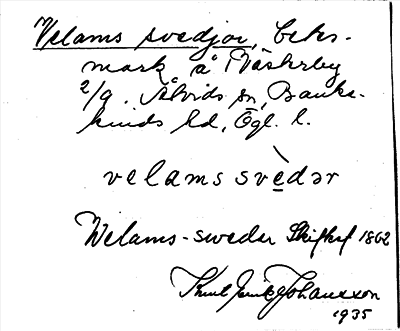 Velams svedjor, betes-
mark å Västerby
2/9. Åtvids sn, Banke-
kinds hd, Ögl. l.
velams svèdər
Welams-swedar Skifteskf 1862
Knut Erik Johansson
1935